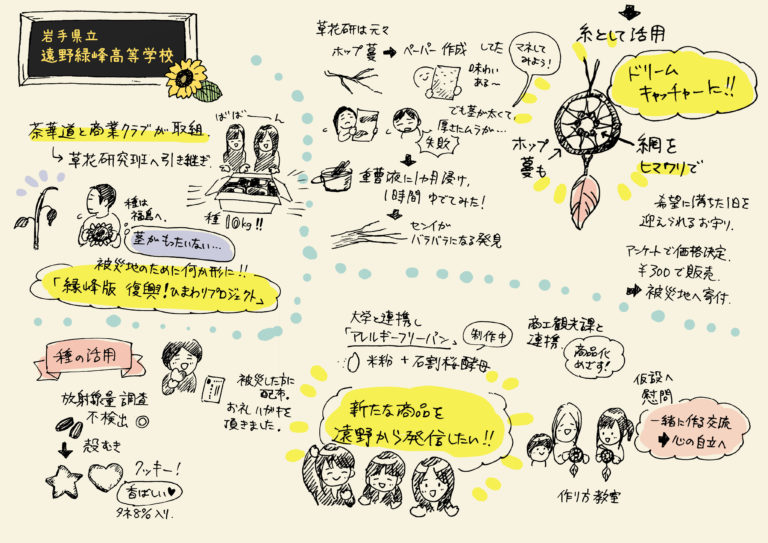 岩手県立
遠野緑峰高等学校
茶華道と商業クラブが取組.
草花研究班へ引き継ぎ
ばばーーん
種10kg!!
種は
福島へ.
茎がもったいない…
被災地のために何か形に!!
「緑峰版 復興!ひまわりプロジェクト」
草花研は元々
ホップ蔓
ペーパー作成
してた
味わい
ある〜
マネして
みよう!
でも茎が太くて、
厚さにムラが…
失敗
重曹液に1カ月浸け、
1時間ゆでてみた!
センイが
バラバラになる発見
糸として活用
ドリーム
キャッチャーに!!
ホップ
蔓も
網を
ヒマワリで
希望に満ちた1日を
迎えられるお守り.
アンケートで価格決定.
¥300で販売.
被災地へ寄付.
種の活用
放射線量調査
不検出 ◎
殻むき
クッキー!
香ばしい♥
タネ8%入り.
被災した方に
配布.
お礼ハガキを
頂きました。
大学と連携し
「アレルギーフリーパン」
製作中
米粉+石割桜酵母
新たな商品を
遠野から発信したい!!
商工観光課と
連携.
商品化
めざす!
仮設へ
慰問
一緒に作る交流
心の自立へ
作り方教室